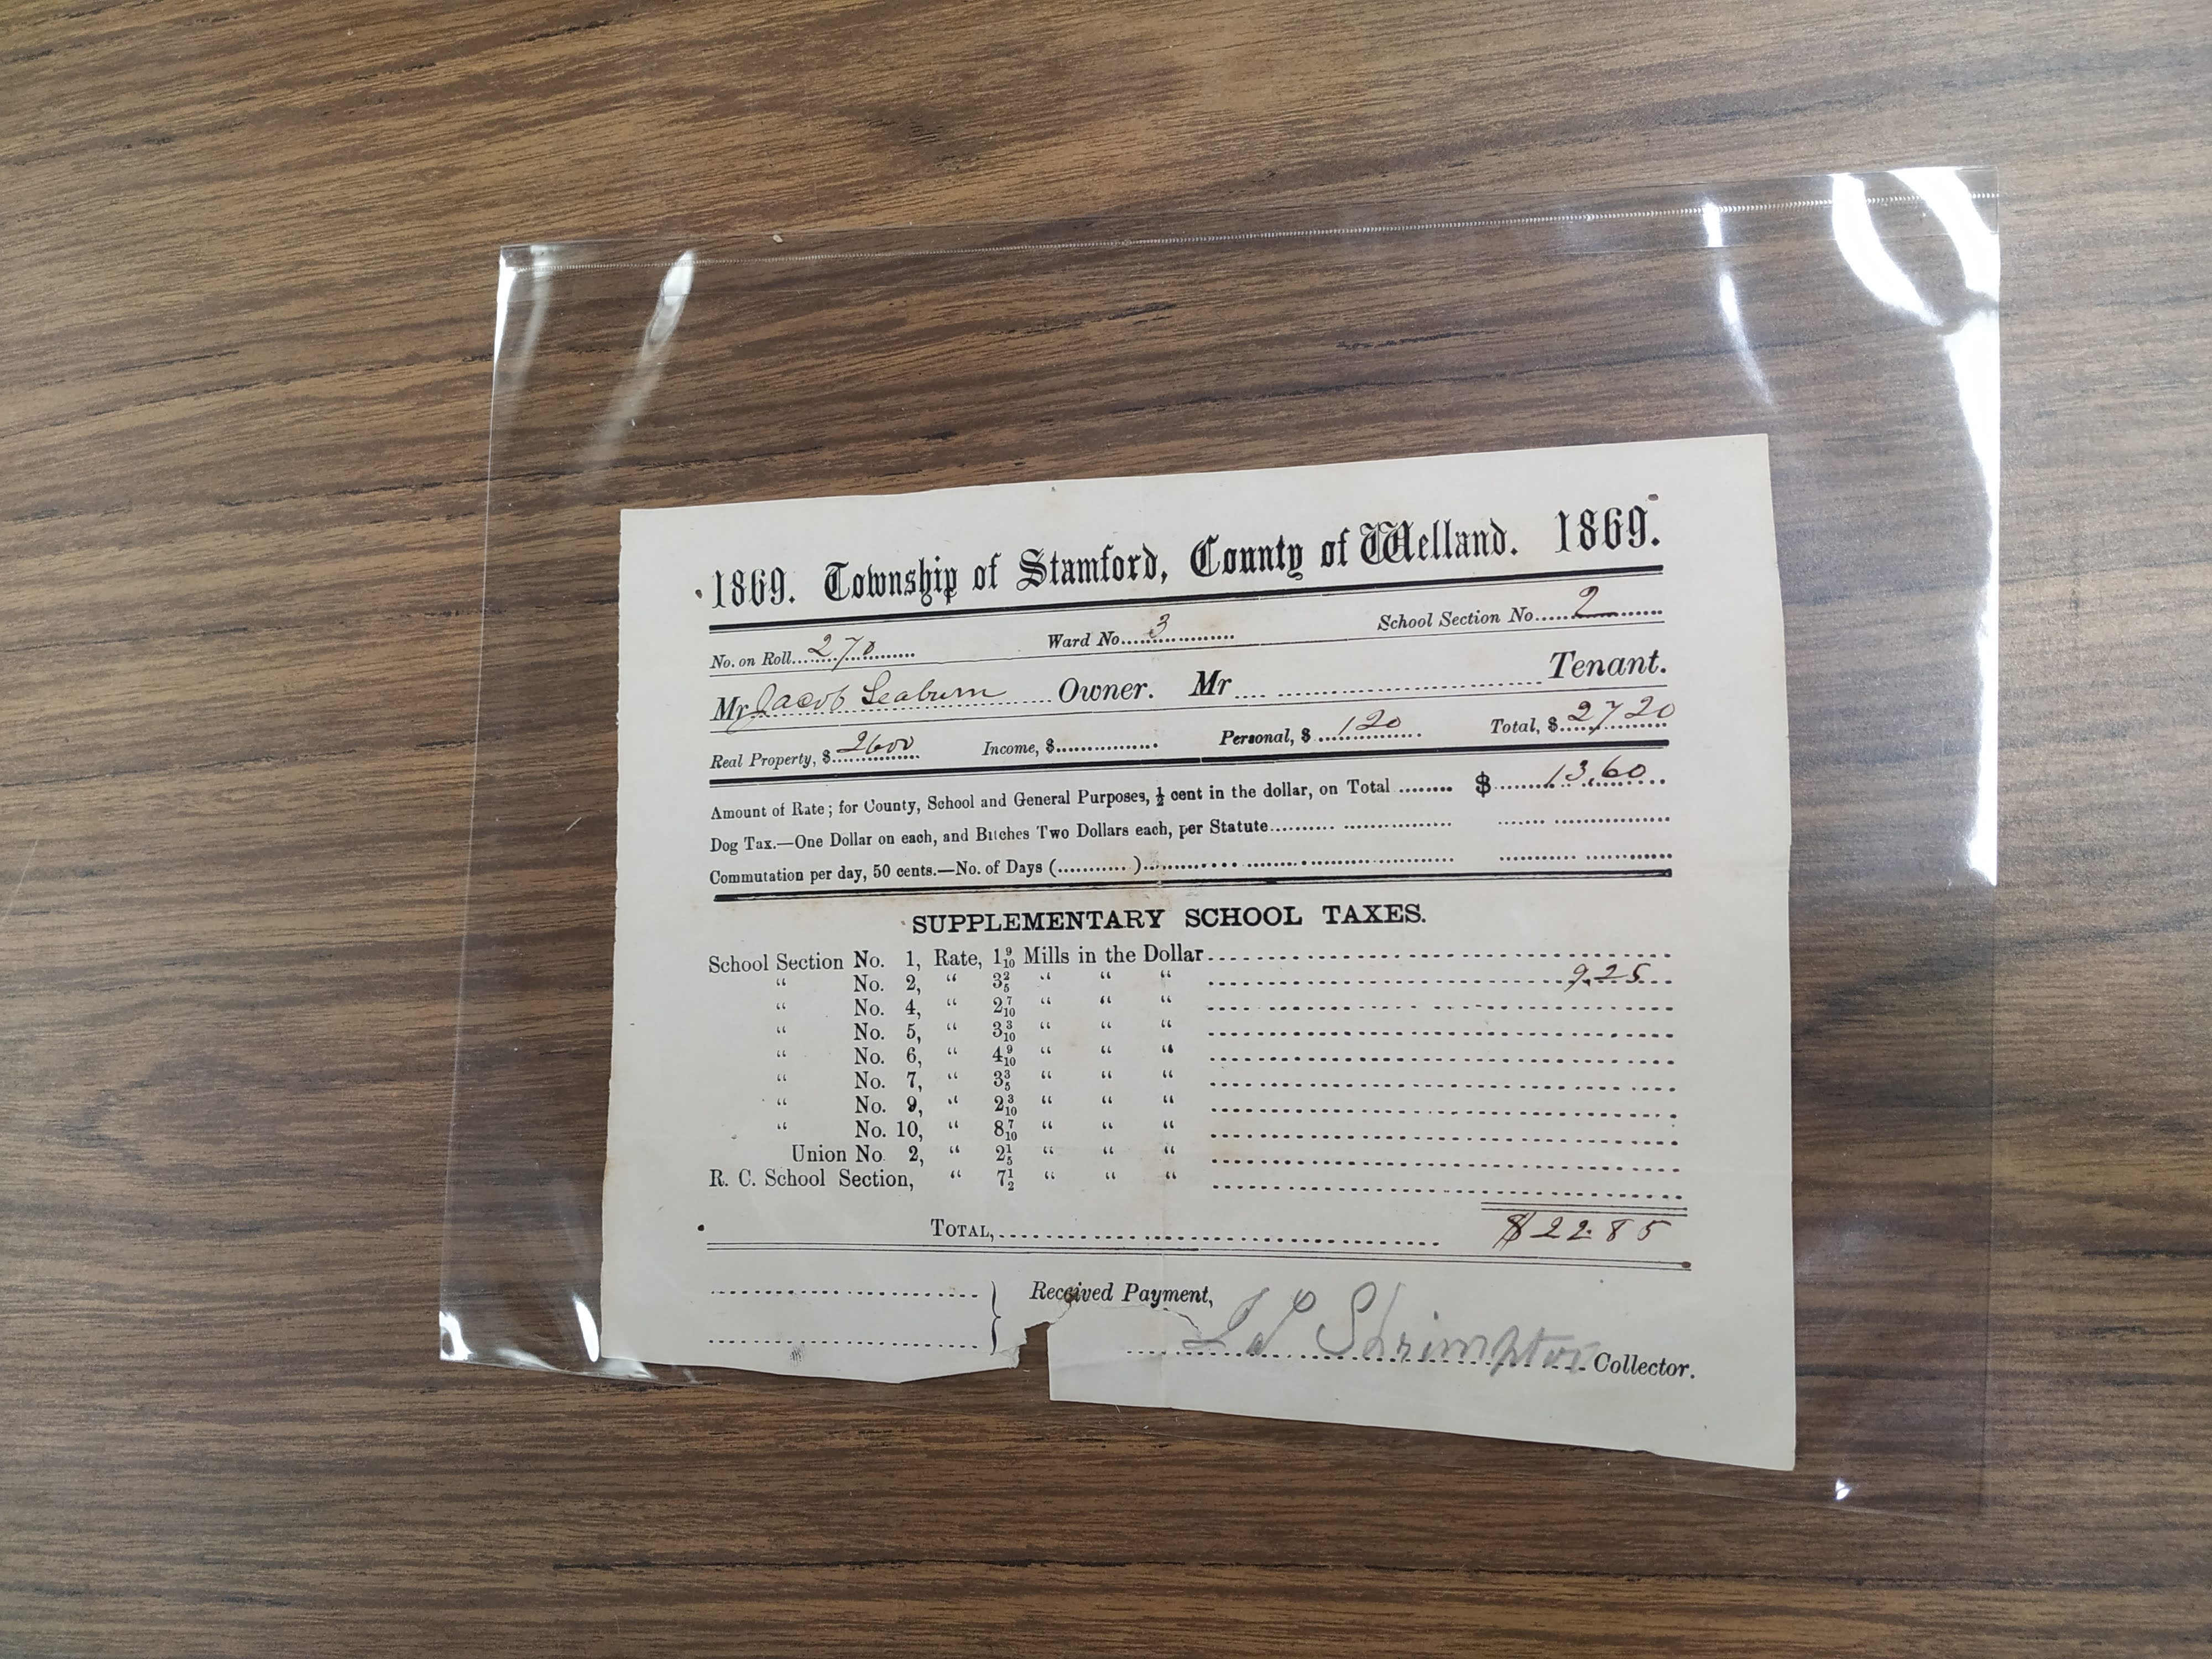 1869. Township of Stamford, County of Welland. 1869.
No. on Roll 270 Ward No. 3 School Section No. 2
Mr Jacob Seaburn Owner. Mr Tenant.
Real Property, $ 2600 Income, $ Personal, $ 120 Total, $ 2720
Amount of Rate; for County, School and General Purposes, ½ cent in the dollar, on Total $ 13.60
Dog Tax.—One Dollar on each, and Bitches Two Dollars each, per Statute
Commutation per day, 50 cents.—No. of Days ( )
SUPPLEMENTARY SCHOOL TAXES.
School Section No. 1, Rate, 1 9/10 Mills in the Dollar
“ No. 2, “ 3 2/5 “ “ “ 9.25
“ No. 4, “ 2 7/10 “ “ “
“ No. 5, “ 3 3/10 “ “ “
“ No. 6, “ 4 9/10 “ “ “
“ No. 7, “ 3 3/5 “ “ “
“ No. 9, “ 2 3/10 “ “ “
“ No. 10, “ 8 7/10 “ “ “
Union No. 2, “ 2 1/5 “ “ “
R. C. School Section, “ 7 1/2 “ “ “
TOTAL, $22.85
Received Payment,
Shrimpton Collector.